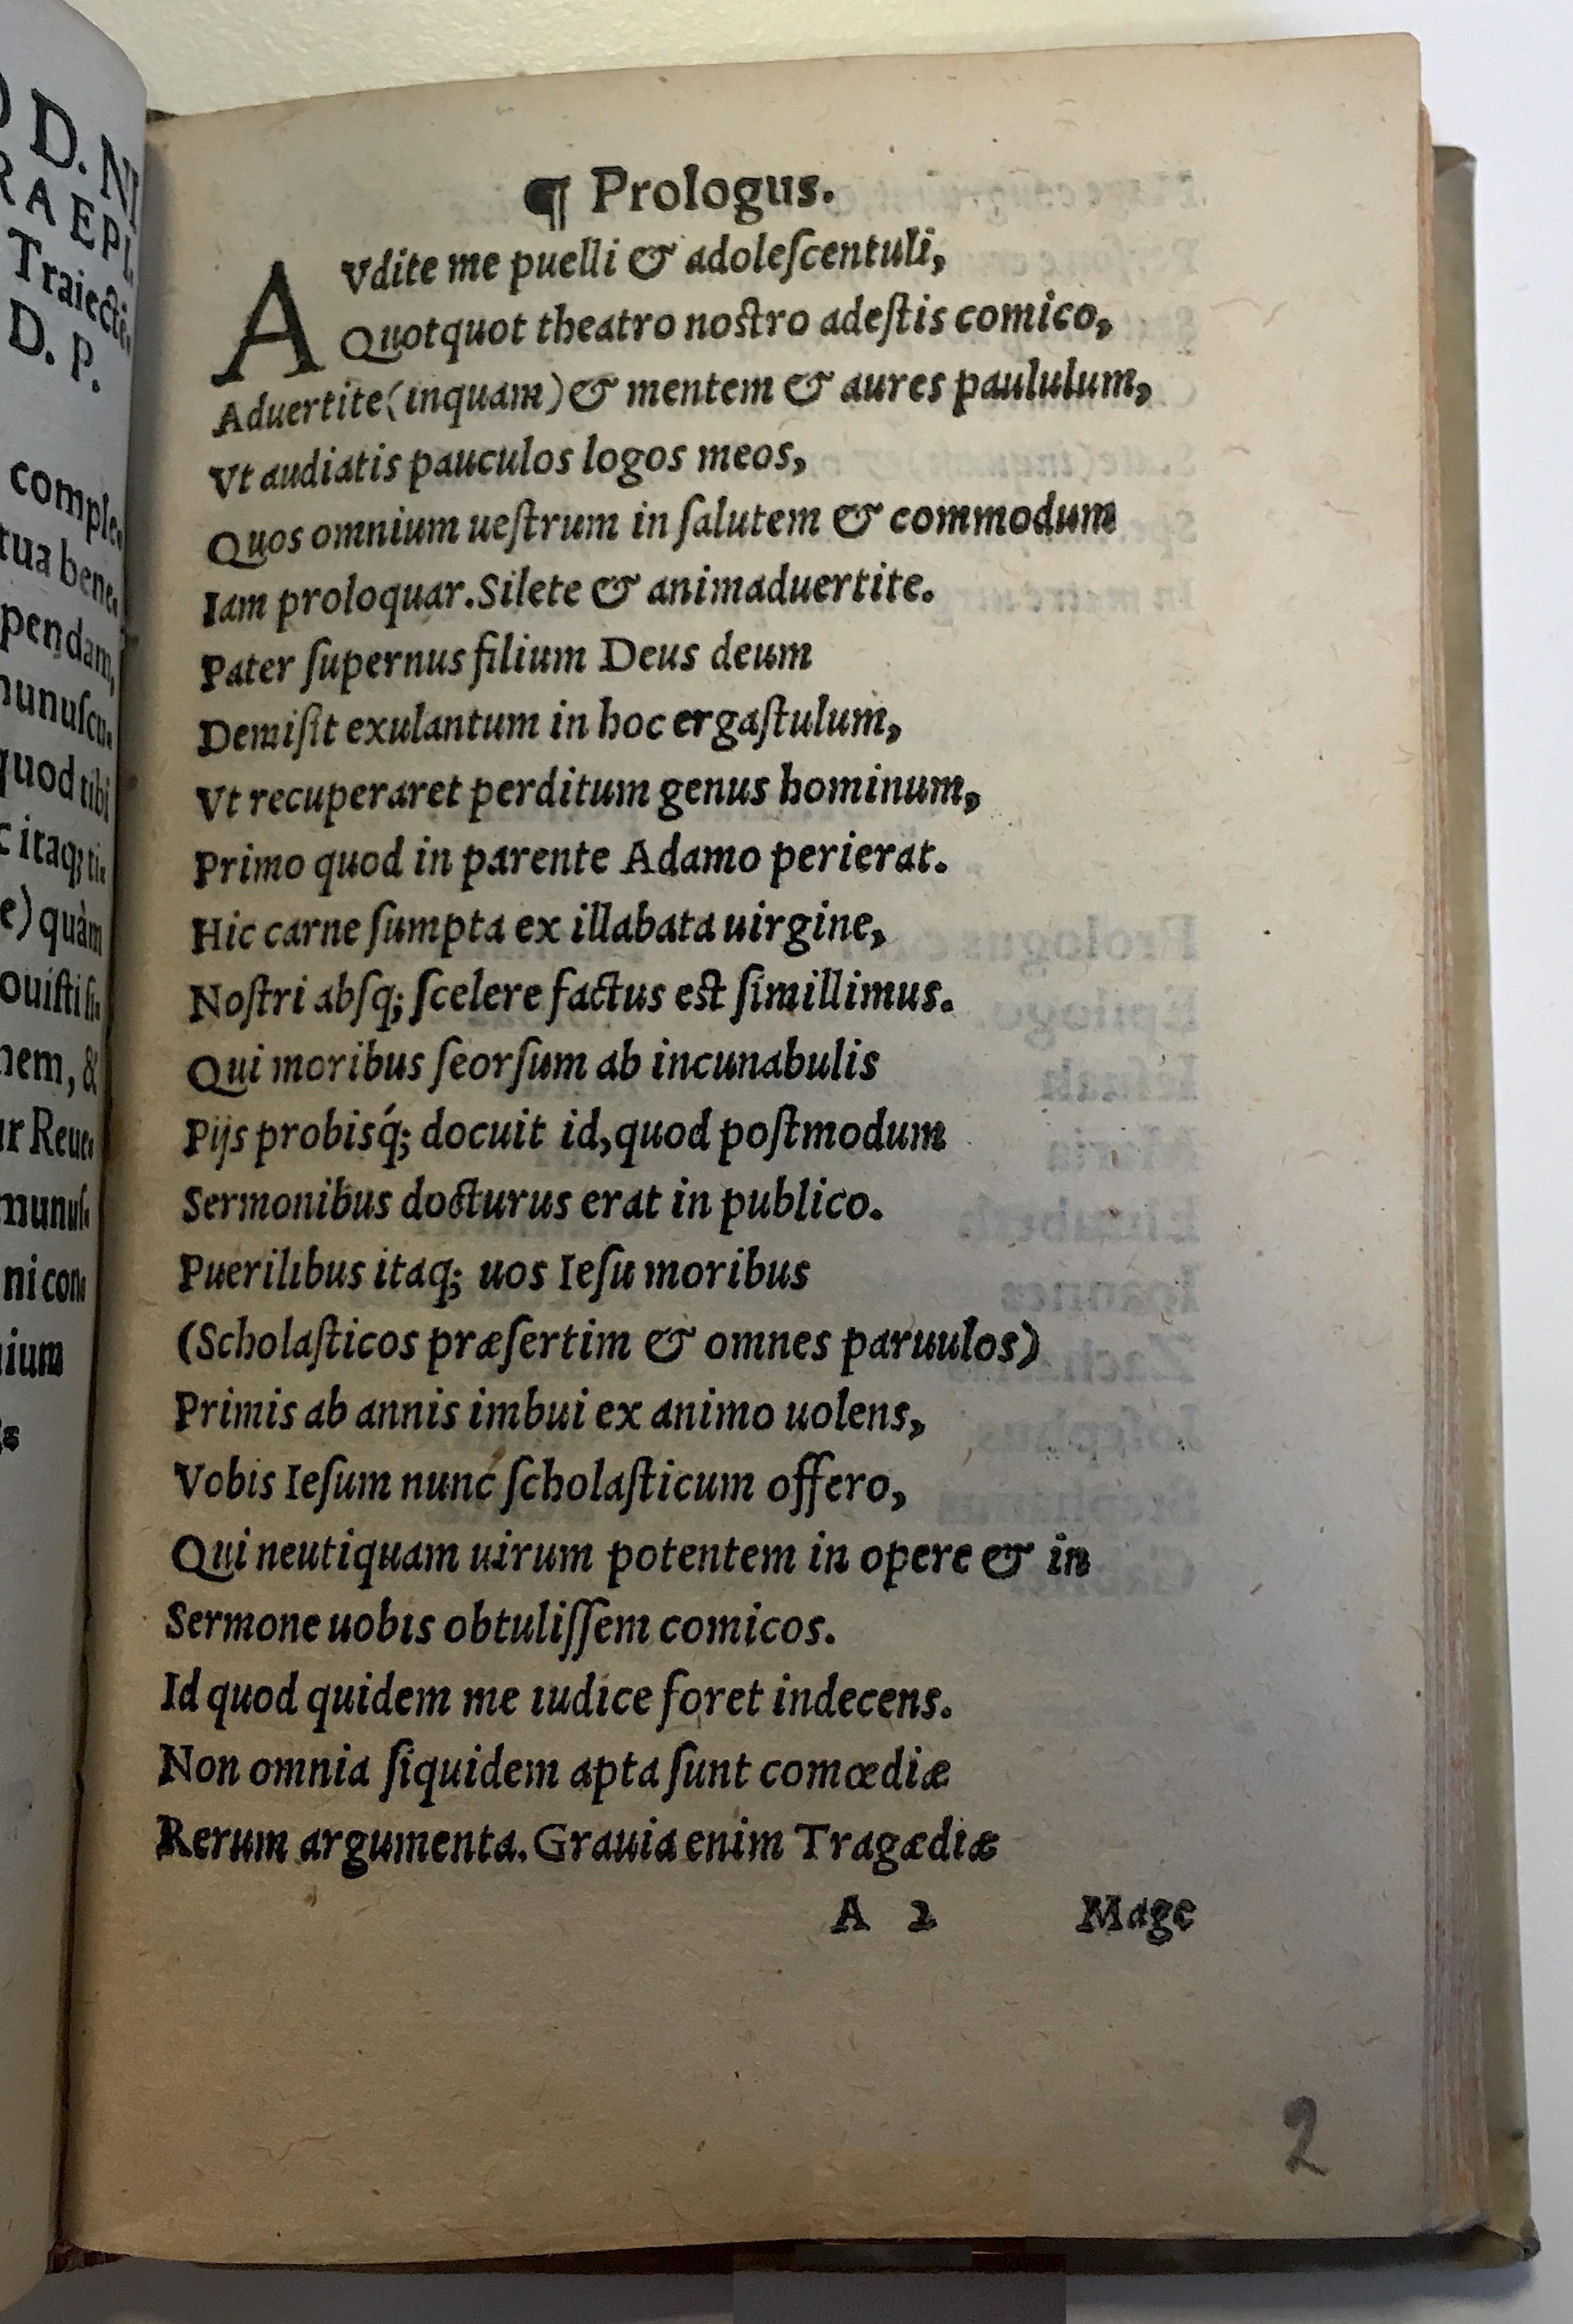 D. NI
RA EPI.
Traiecti.
D. P.
comple-
tua bene-
pendam,
munuscu-
quod tibi
itaq; ti-
e) quàm
ouisti si-
nem, &
ur Reue-
munus-
ni con-
nium
¶ Prologus.
AVdite me puelli & adoleſcentuli,
Quotquot theatro noſtro adeſtis comico,
Aduertite (inquam) & mentem & aures paululum,
Vt audiatis pauculos logos meos,
Quos omnium ueſtrum in ſalutem & commodum
Iam proloquar. Silete & animaduertite.
Pater ſupernus filium Deus deum
Demiſit exulantum in hoc ergaſtulum,
Vt recuperaret perditum genus hominum,
Primo quod in parente Adamo perierat.
Hic carne ſumpta ex illabata uirgine,
Noſtri abſq; ſcelere factus eſt ſimillimus.
Qui moribus ſeorſum ab incunabulis
Pijs probisq́; docuit id, quod poſtmodum
Sermonibus docturus erat in publico.
Puerilibus itaq; uos Ieſu moribus
(Scholaſticos præſertim & omnes paruulos)
Primis ab annis imbui ex animo uolens,
Vobis Ieſum nunc ſcholaſticum offero,
Qui neutiquam uirum potentem in opere & in
Sermone uobis obtuliſſem comicos.
Id quod quidem me iudice foret indecens.
Non omnia ſiquidem apta ſunt comœdiæ
Rerum argumenta. Grauia enim Tragædiæ
A 2 Mage
2